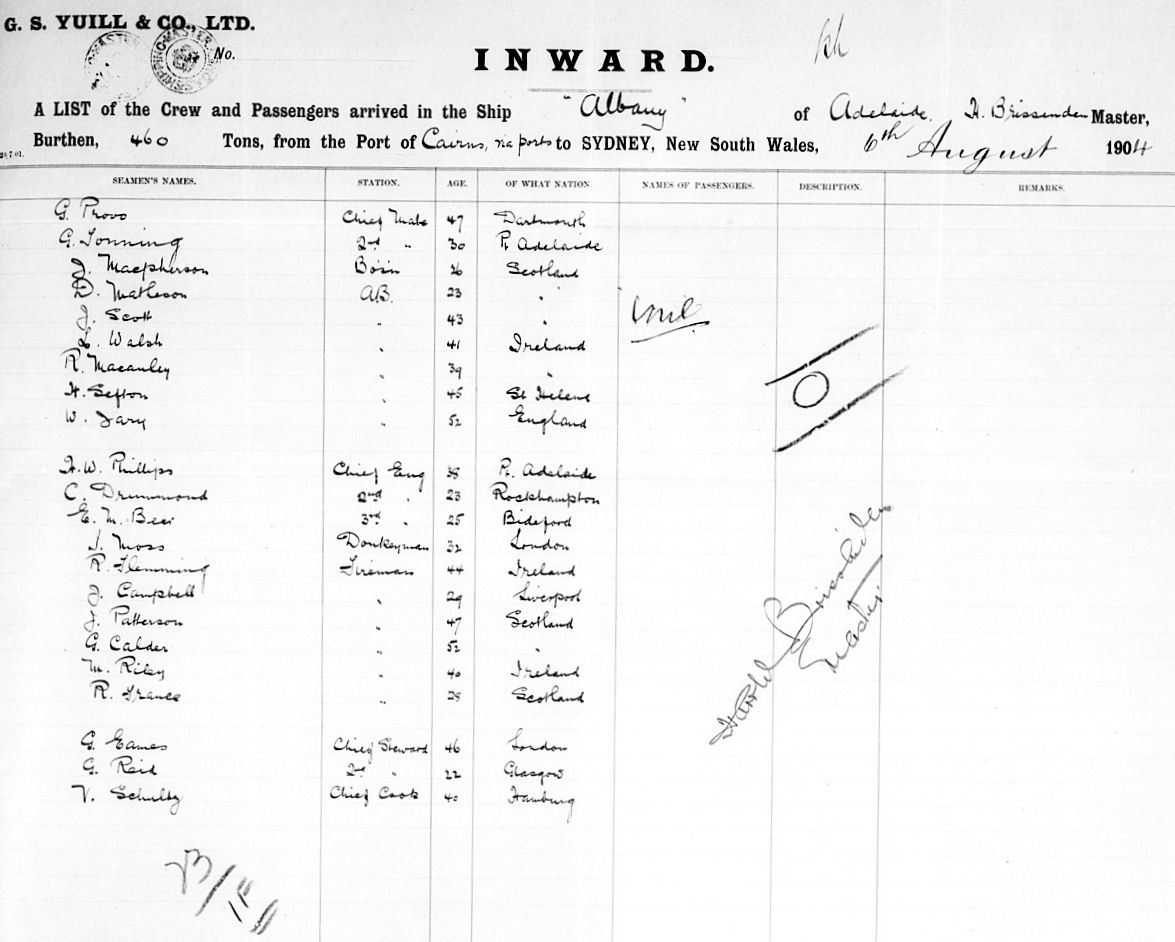 G. S. YUILL & CO., LTD.
No.
INWARD.
A LIST of the Crew and Passengers arrived in the Ship "Albany" of Adelaide, H. Brissenden Master,
Burthen, 460 Tons, from the Port of Cairns, via ports to SYDNEY, New South Wales, 6th August 1904
SEAMEN'S NAMES. STATION. AGE. OF WHAT NATION. NAMES OF PASSENGERS. DESCRIPTION. REMARKS.
G. Provo Chief Mate 47 Dartmouth
G. Tonning 2nd " 30 Pt. Adelaide
J. Macpherson Bo'sn 26 Scotland
D. Matheson A.B. 23 "
J. Scott " 43 "
nil
L. Walsh " 41 Ireland
R. Macauley " 39 "
H. Sefton " 45 St Helena
W. Jary " 52 England
H. W. Phillips Chief Eng 38 Pt. Adelaide
C. Drummond 2nd " 23 Rockhampton
E. M. Beer 3rd " 25 Bideford
J. Moss Donkeyman 32 London
R. Flemming Fireman 44 Ireland
J. Campbell " 29 Liverpool
J. Patterson " 47 Scotland
G. Calder " 52 "
M. Riley " 40 Ireland
R. France " 28 Scotland
Harold Brissenden
Master
G. Eames Chief Steward 46 London
G. Reid 2nd " 22 Glasgow
V. Schultz Chief Cook 40 Hamburg